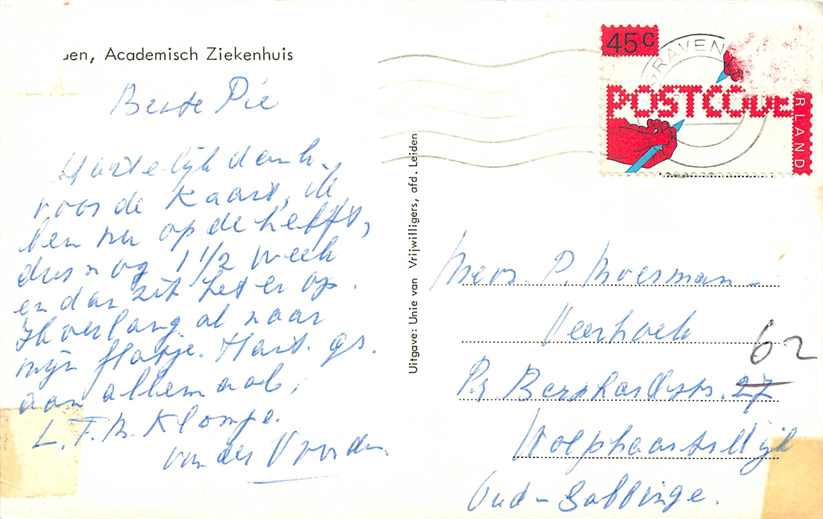 en, Academisch Ziekenhuis
Beste Pie
Hartelijk dank
voor de kaart, ik
ben nu op de helft,
dus nog 1 1/2 week
en dan zit het er op.
Ik verlang al naar
mijn flatje. Hart. gr.
aan allemaal,
L.T.M. Klompé.
van der Vorden
Uitgave: Unie van Vrijwilligers, afd. Leiden
45c
POSTCODE
RLAND
GRAVEN
Mevr. P. Moerman
Veerhoek
62
Pr Bernhardstr. 27
Wolphaartsdijk
Oud-Sabbinge.